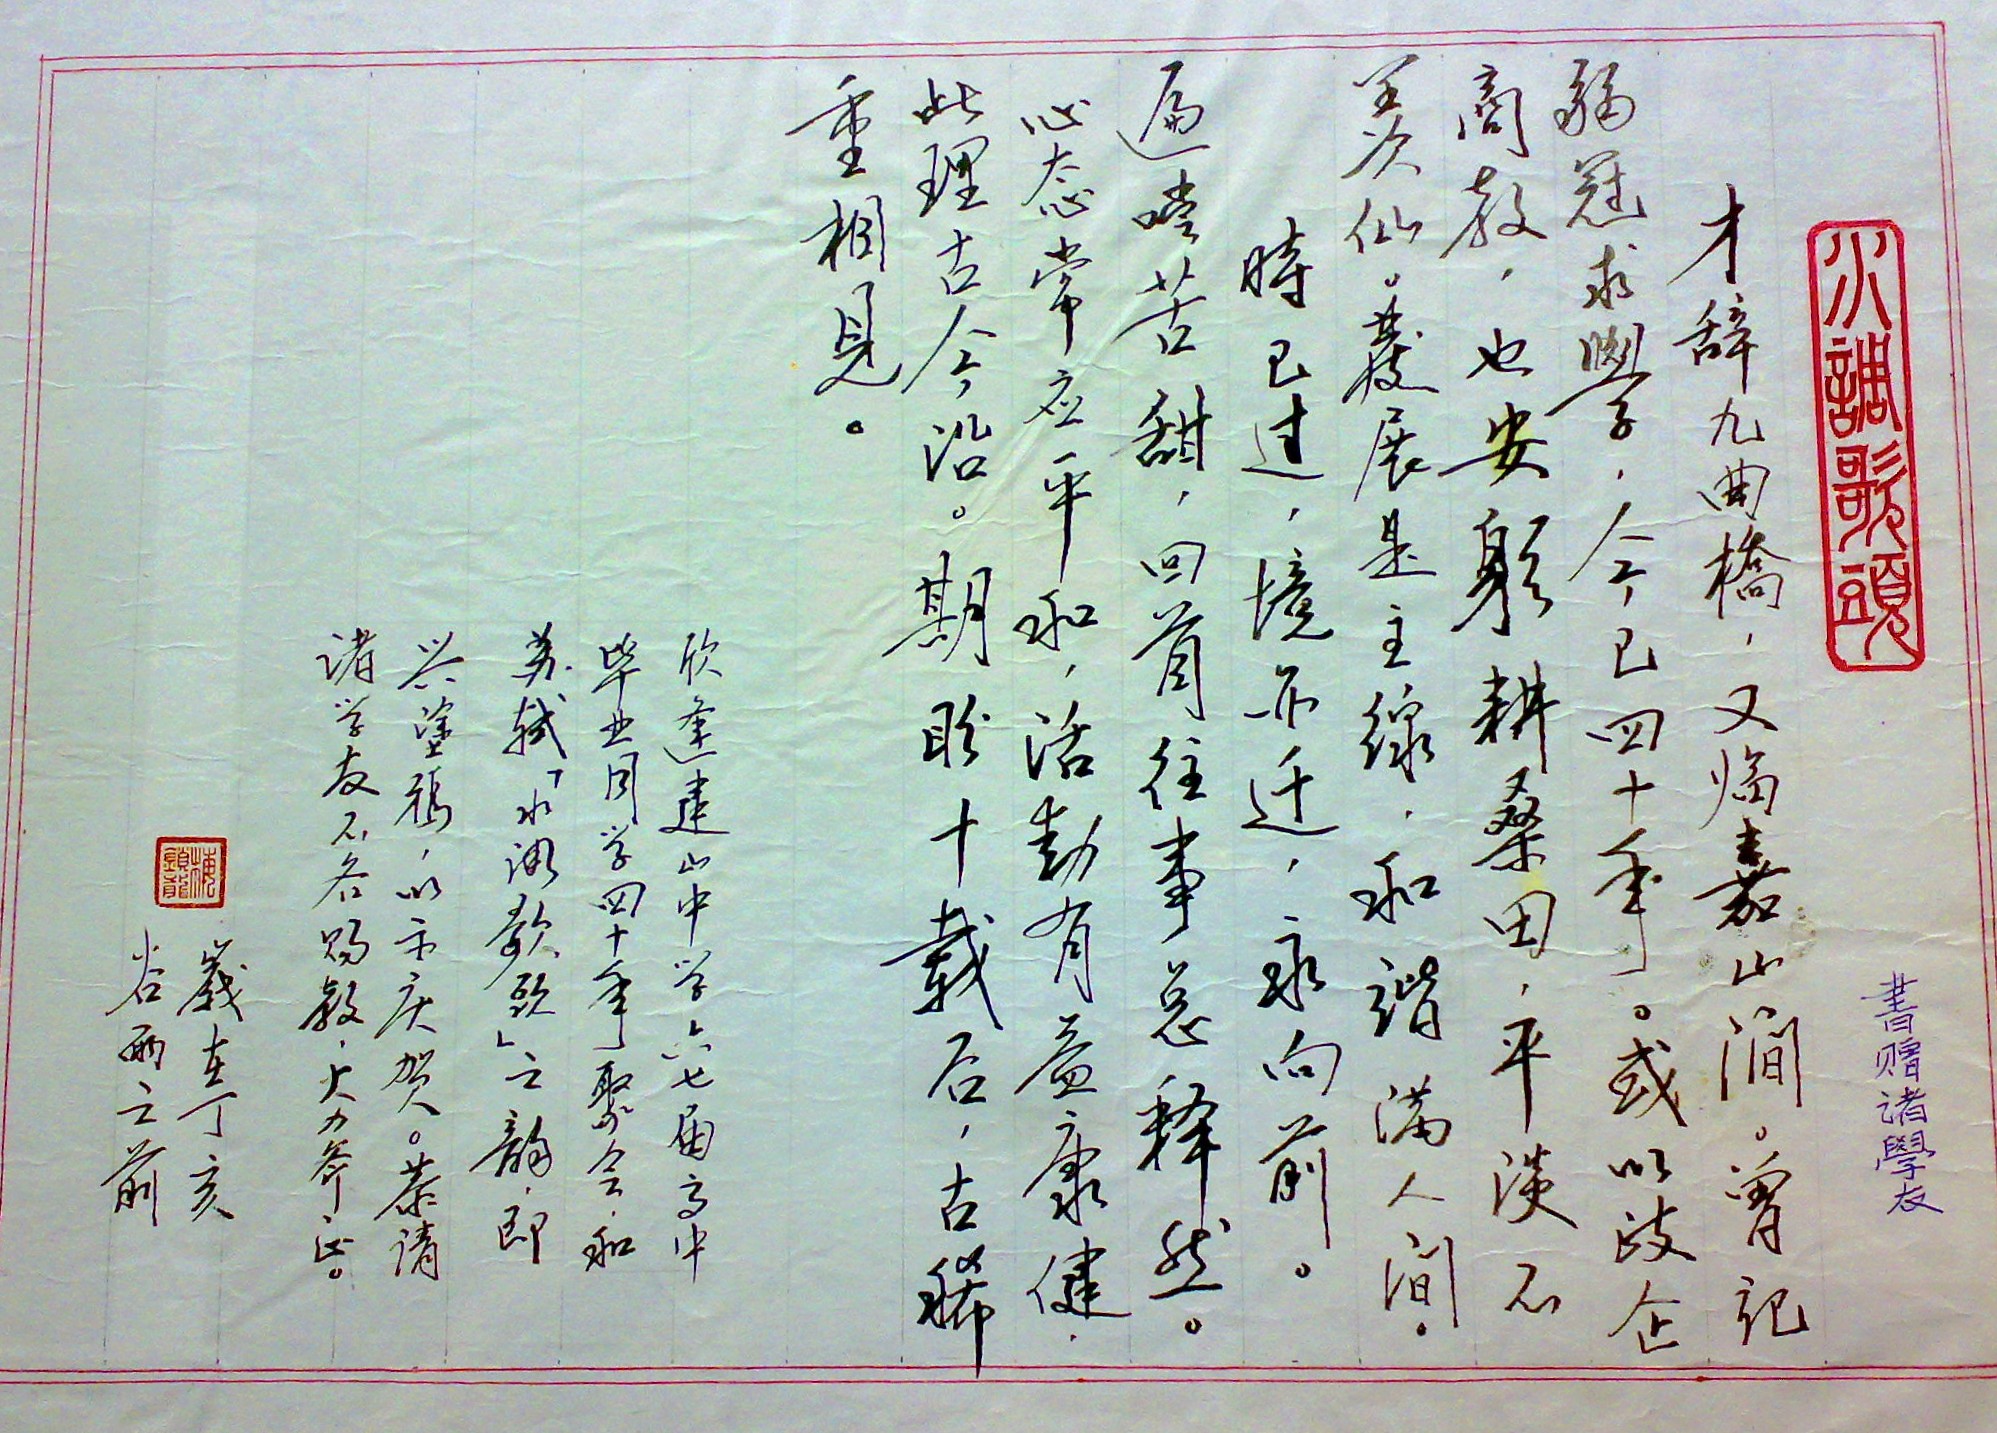 水調歌頭
書贈诸學友
才辞九曲橋，又临嘉山澗。曾记
弱冠求學，今已四十年。或以政企
商教，也安躬耕桑田，平淡不
羡仙。發展是主線，和谐满人间。
時已过，境亦迁，永向前。
遍嘗苦甜，回首往事总释然。
心态常应平和，活動有益康健，
此理古今沿。期盼十载后，古稀
重相見。
欣逢建山中学六七届高中
毕业同学四十年聚会，和
苏轼「水调歌头」之韵，即
兴塗鸦，以示庆贺。恭请
诸学友不吝赐教，大力斧正。
歲在丁亥
谷雨之前